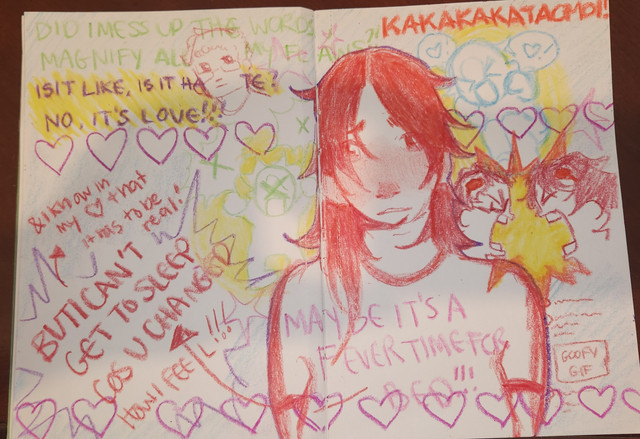 DID I MESS UP THE WORDS,
MAGNIFY ALL MY FLAWS?!
KAKAKAKATAOMOI!
IS IT LIKE, IS IT HATE?
NO, IT'S LOVE!!!
& I know in
my ♡ that
it has to be
real!
BUT I CAN'T
GET TO SLEEP
COS U CHANGED
HOW I FEEL!!!
MAYBE IT'S A
FEVER TIME FOR
GOOFY
GIF